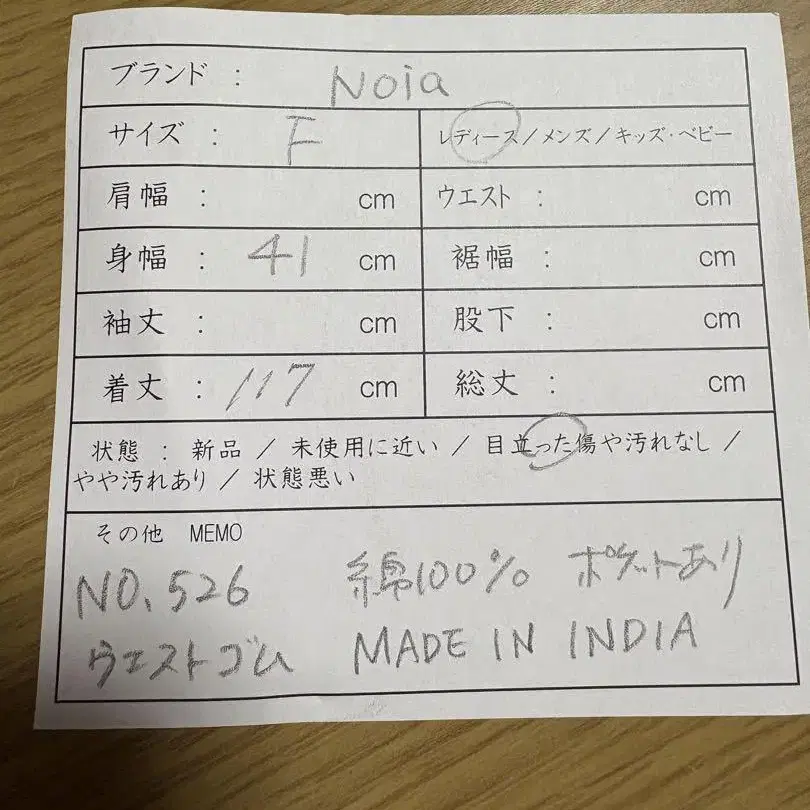 ブランド : Noia
サイズ : F レディース/メンズ/キッズ・ベビー
肩幅 : cm ウエスト : cm
身幅 : 41 cm 裾幅 : cm
袖丈 : cm 股下 : cm
着丈 : 117 cm 総丈 : cm
状態 : 新品 / 未使用に近い / 目立った傷や汚れなし /
やや汚れあり / 状態悪い
その他 MEMO
NO.526 綿100% ポケットあり
ウエストゴム MADE IN INDIA